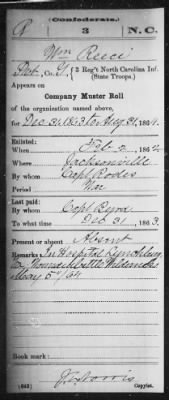 (Confederate.)
R 3 N.C.
Wm Reece
Pvt., Co. G, 3 Reg't North Carolina Inf.
(State Troops.)
Appears on
Company Muster Roll
of the organization named above,
for Dec 31, 1863 to Aug 31, 1864.
Enlisted:
When Feb 2, 186
Where Jacksonville
By whom Capt Rodes
Period War
Last paid:
By whom Capt
To what time Dec 31, 1863.
Present or absent Absent
Remarks: In Hospital Lynchburg
Wound Battle Wilderness
May 5th/64
Book mark:
(642) Morris
Copyist.